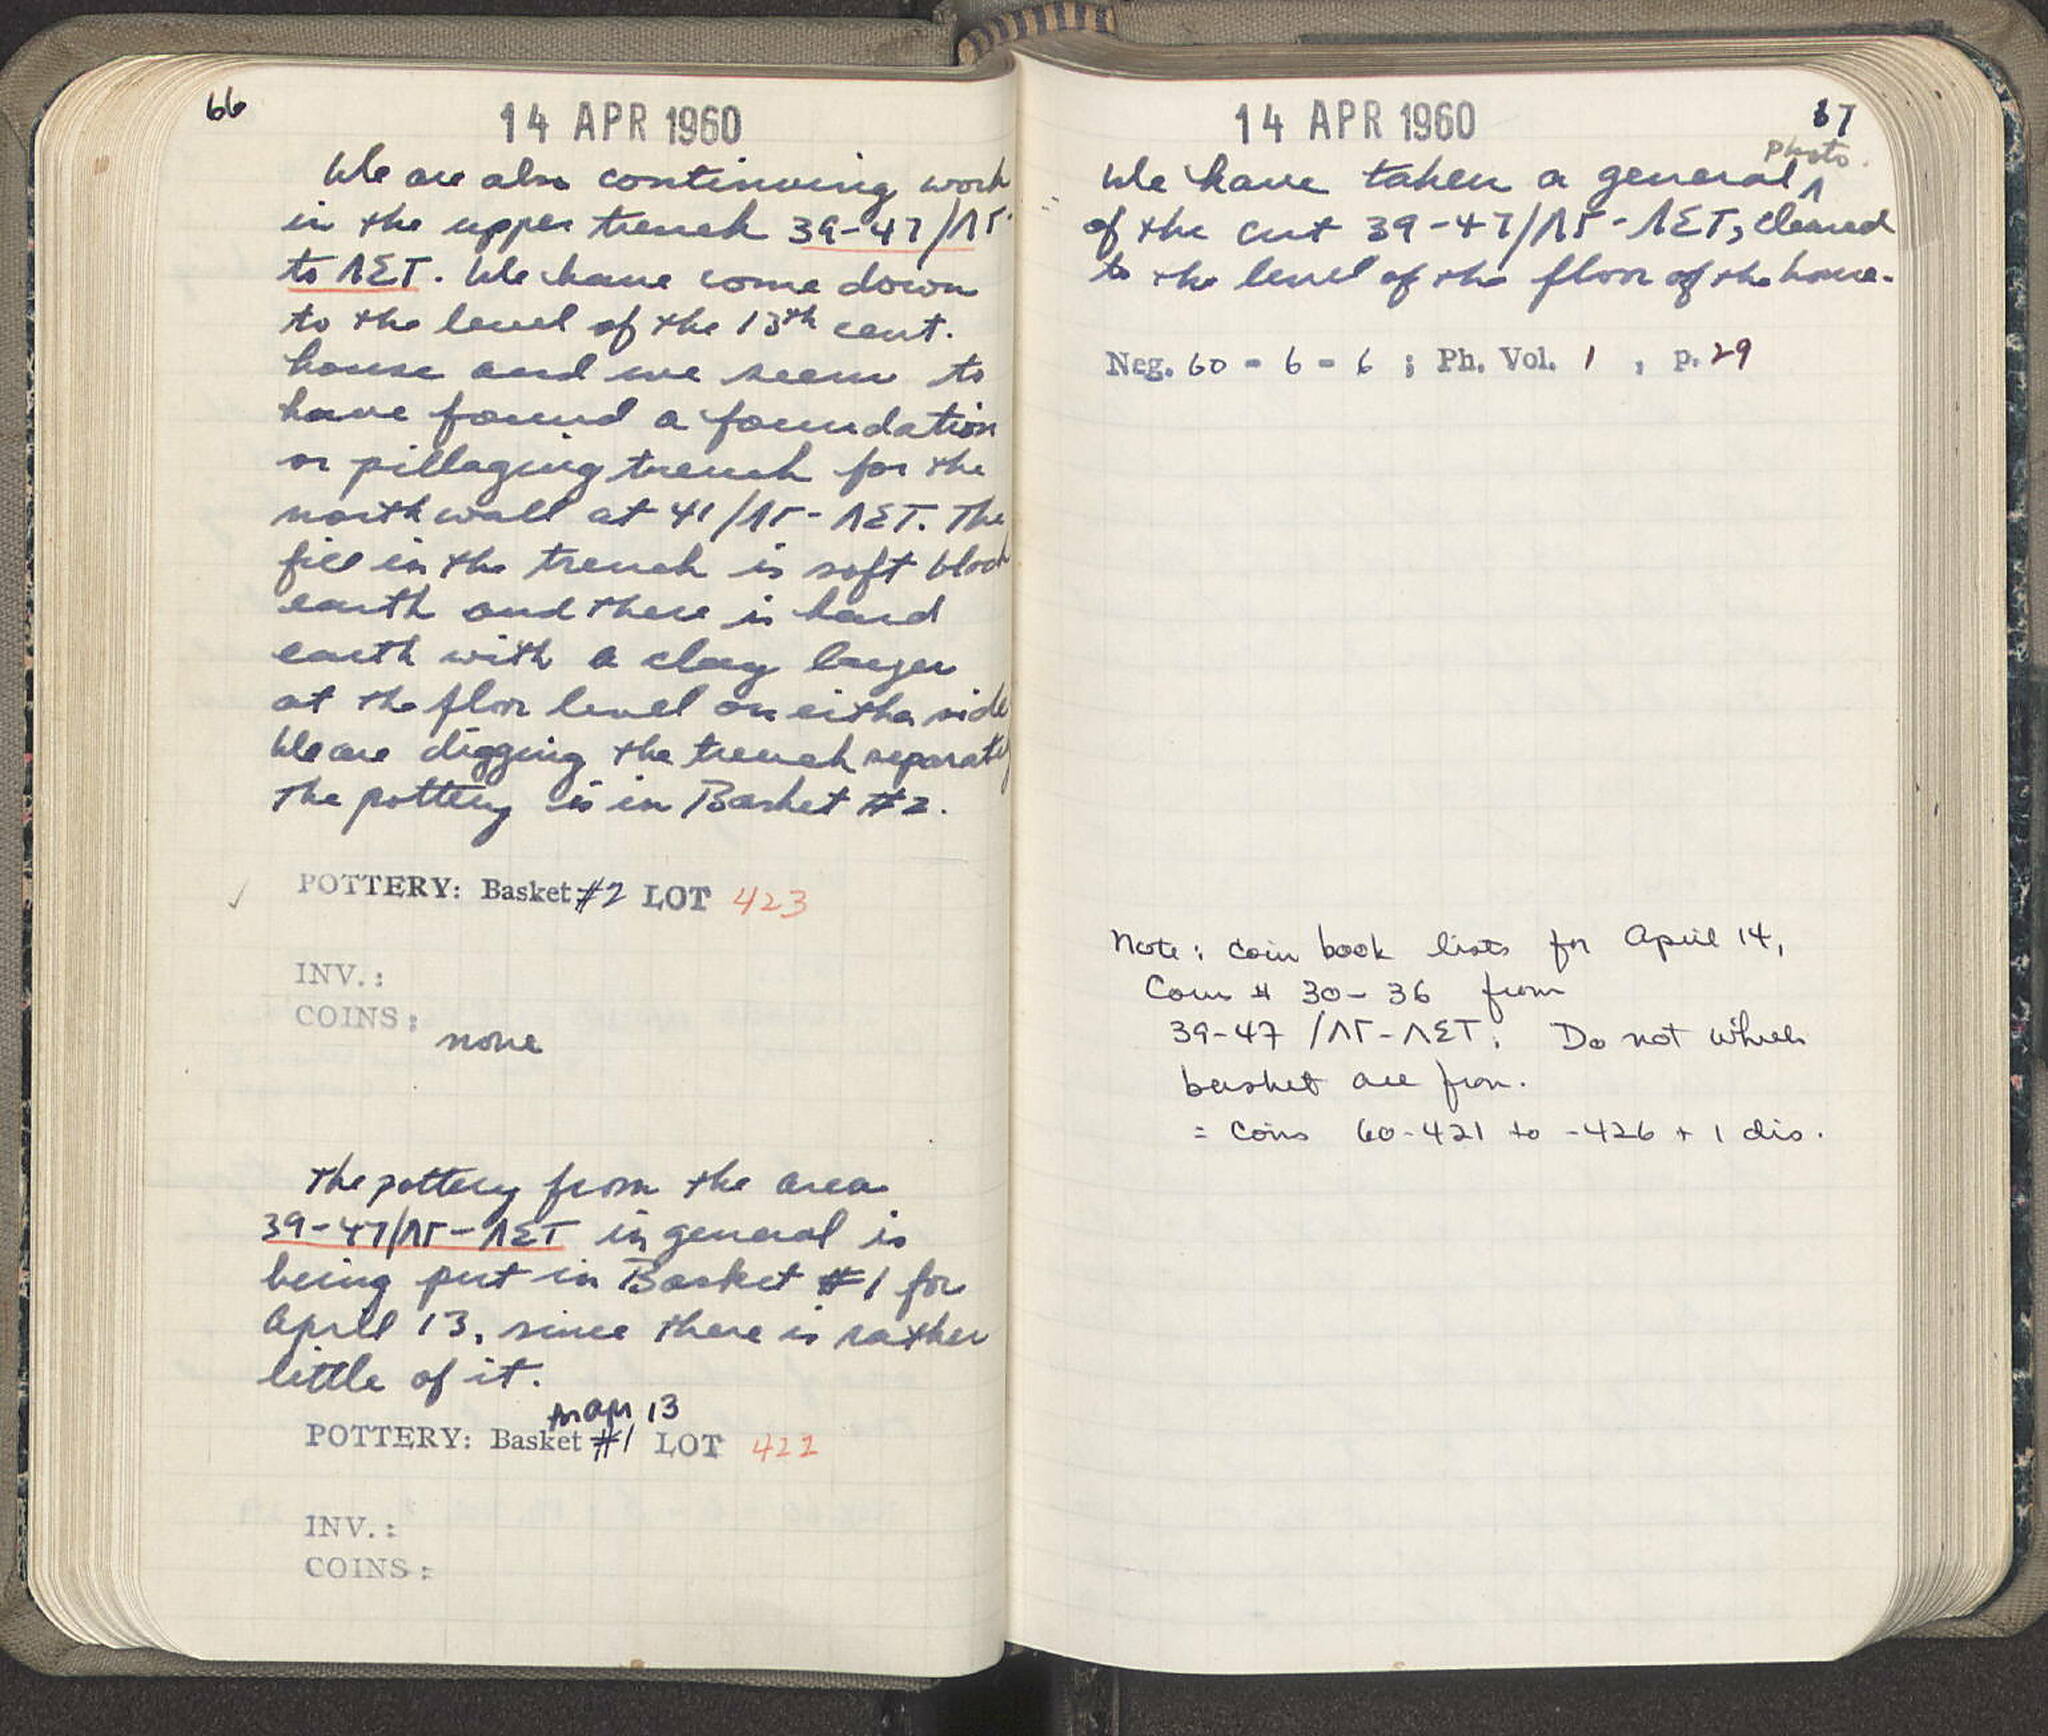 66
14 APR 1960
We are also continuing work
in the upper trench 39-47/ΛΓ
to ΛΣΤ. We have come down
to the level of the 13th cent.
house and we seem to
have found a foundation
or pillaging trench for the
north wall at 41/ΛΓ-ΛΣΤ. The
fill in the trench is soft black
earth and there is hard
earth with a clay layer
at the floor level on either side
We are digging the trench separately
The pottery is in Basket #2.
POTTERY: Basket #2 LOT 423
INV.:
COINS:
none
The pottery from the area
39-47/ΛΓ-ΛΣΤ in general is
being put in Basket #1 for
April 13, since there is rather
little of it.
for Apr 13
POTTERY: Basket #1 LOT 422
INV.:
COINS:
14 APR 1960
67
photo.
We have taken a general ^
of the cut 39-47/ΛΓ-ΛΣΤ, cleared
to the level of the floor of the house.
Neg. 60-6-6; Ph. Vol. 1, p. 29
Note: Coin book lists for April 14,
Coins # 30-36 from
39-47/ΛΓ-ΛΣΤ; Do not which
basket are from.
= Coins 60-421 to -426 + 1 dis.